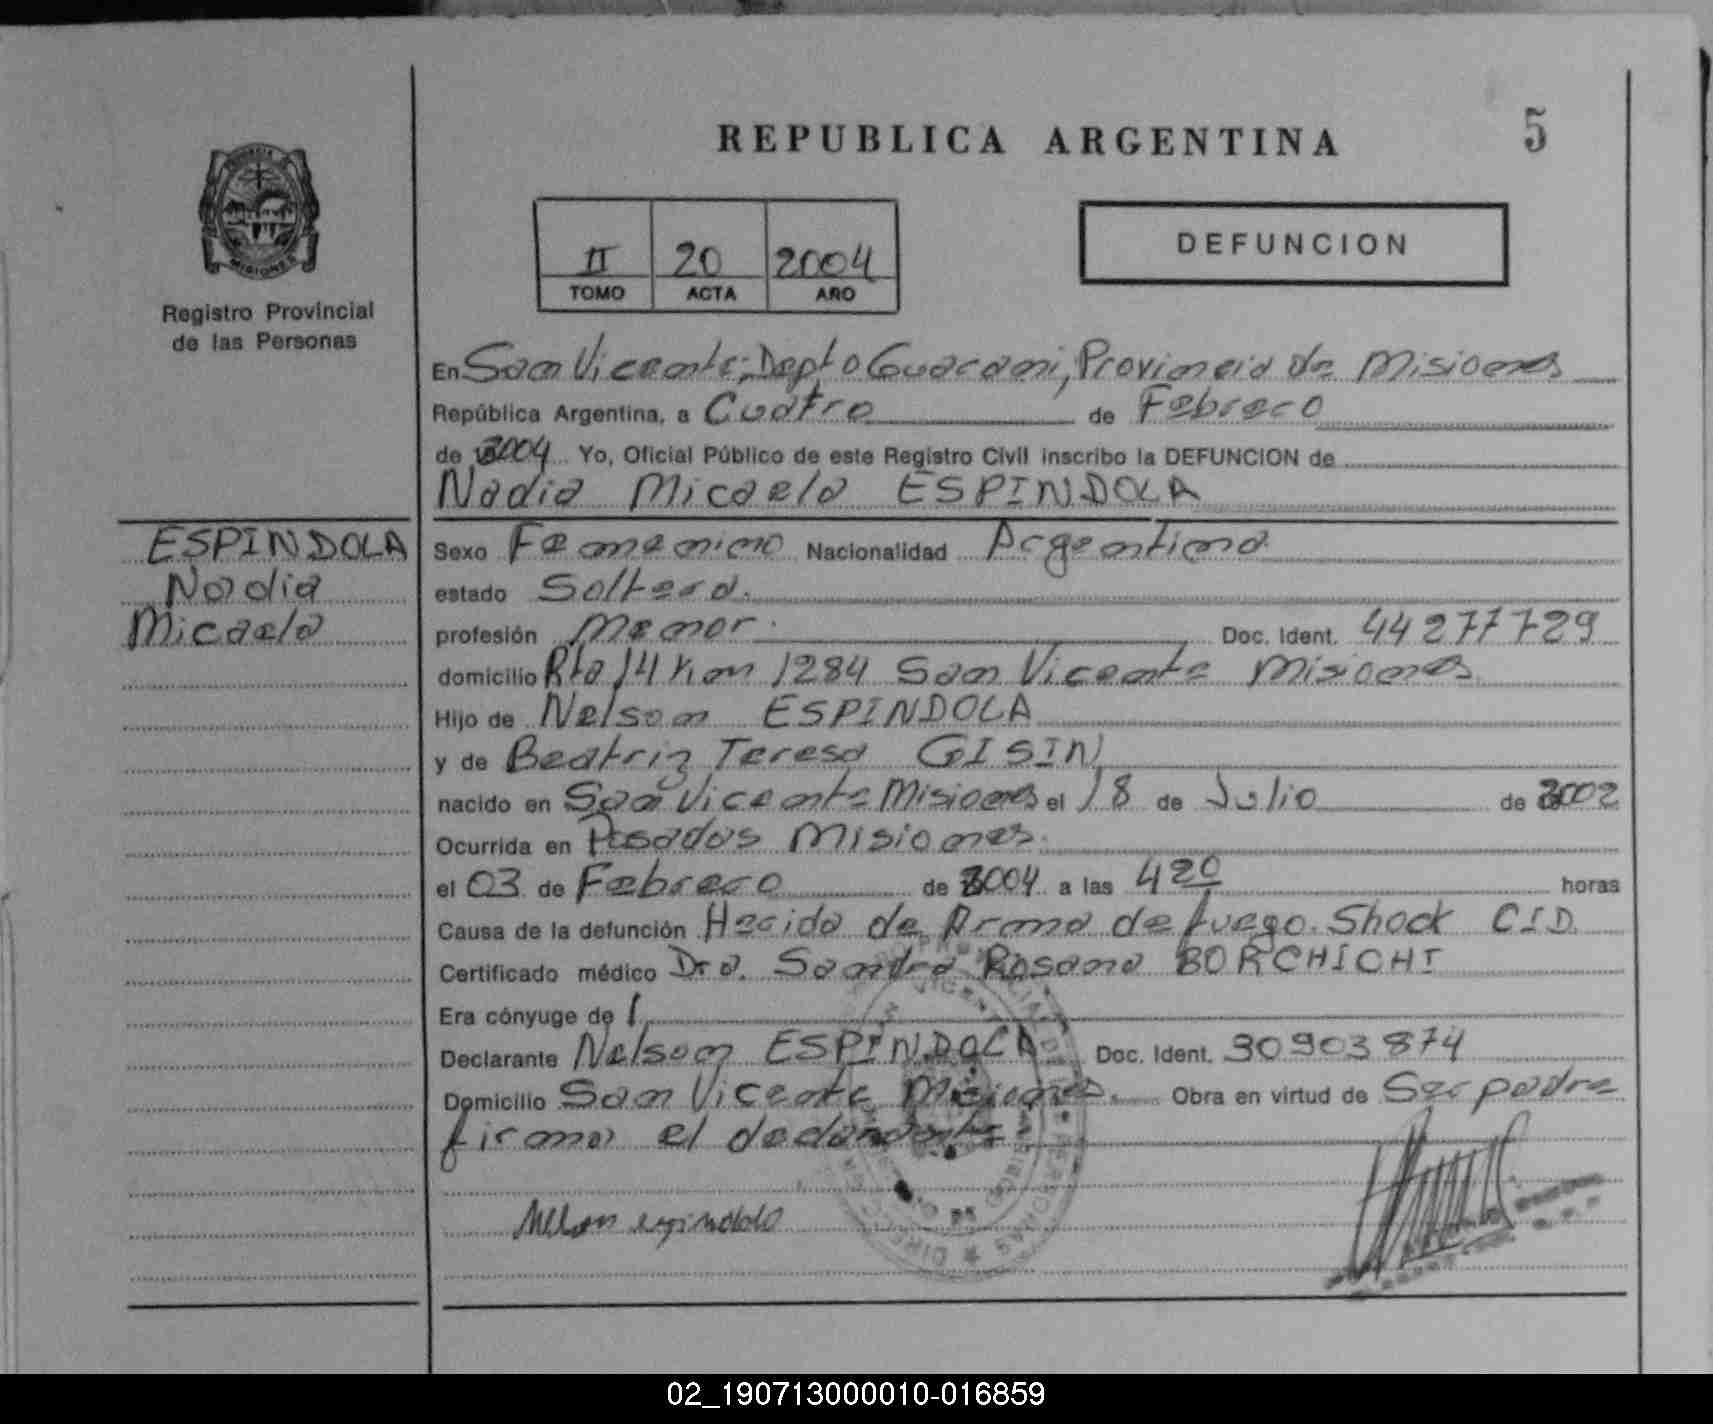 REPUBLICA ARGENTINA
5
II 20 2004
TOMO ACTA AÑO
DEFUNCION
PROVINCIA DE
MISIONES
Registro Provincial
de las Personas
En San Vicente, Depto Guarani, Provincia de Misiones
República Argentina, a Cuatro de Febrero
de 2004 Yo, Oficial Público de este Registro Civil inscribo la DEFUNCION de
Nadia Micaela ESPINDOLA
ESPINDOLA
Nadia
Micaela
Sexo Femenino Nacionalidad Argentina
estado Soltera.
profesión Menor. Doc. Ident. 44277729
domicilio Rta 14 Km 1284 San Vicente Misiones
Hijo de Nelson ESPINDOLA
y de Beatriz Teresa GISIN
nacido en San Vicente Misiones el 18 de Julio de 2002
Ocurrida en Posadas Misiones.
el 03 de Febrero de 2004 a las 420 horas
Causa de la defunción Herida de Arma de fuego. Shock CID.
Certificado médico Dra. Sandra Rosana BORCHICHI
Era cónyuge de /
Declarante Nelson ESPINDOLA Doc. Ident. 30903874
Domicilio San Vicente Misiones. Obra en virtud de Ser padre
firma el declarante
Nelson espindola
02_190713000010-016859